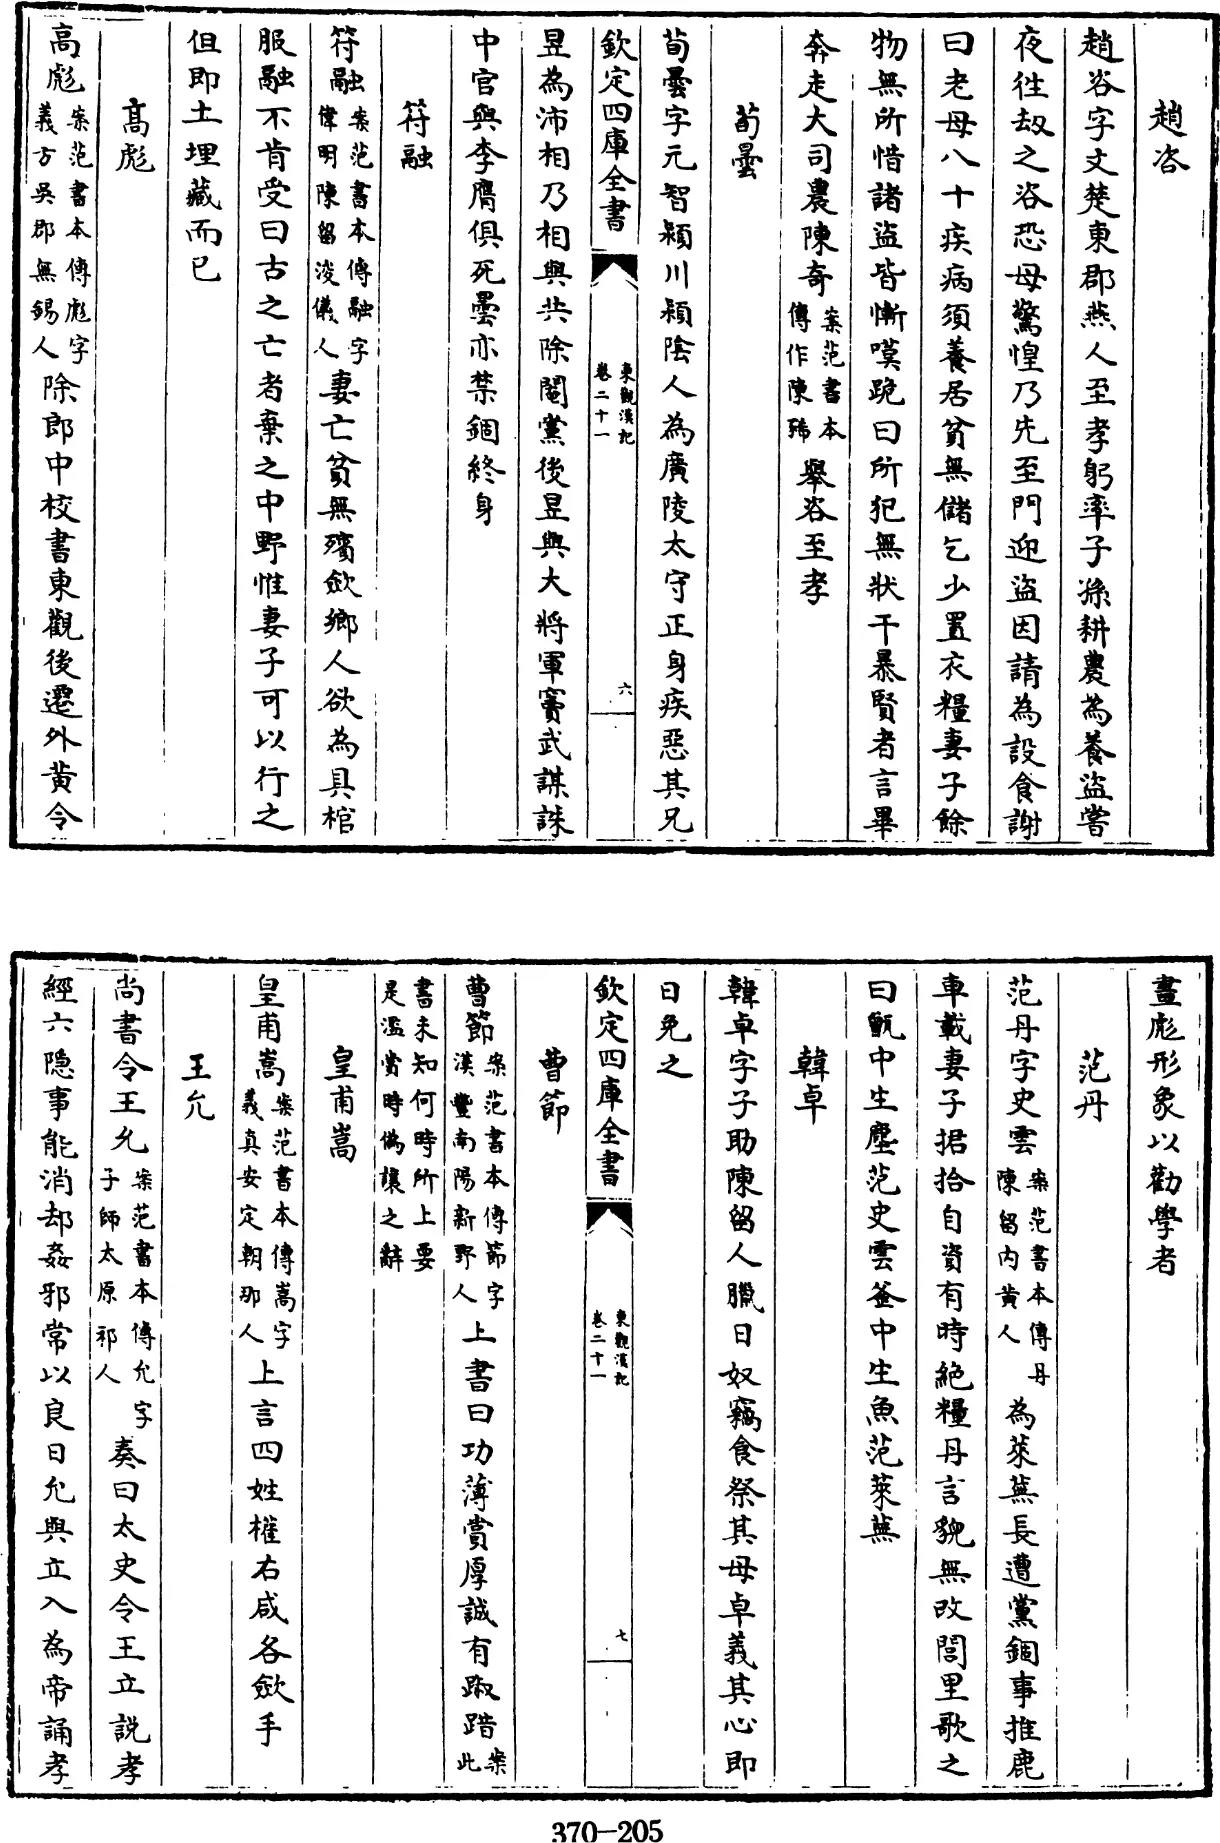 趙咨
趙咨字文楚東郡燕人至孝躬率子孫耕農為養盜嘗
夜往劫之咨恐母驚惶乃先至門迎盜因請為設食謝
曰老母八十疾病須養居貧無儲乞少置衣糧妻子餘
物無所惜諸盜皆慚嘆跪曰所犯無狀干暴賢者言畢
奔走大司農陳奇案范書本傳作陳豨舉咨至孝
荀曇
荀曇字元智潁川潁陰人為廣陵太守正身疾惡其兄
欽定四庫全書 東觀漢記卷二十一 六
昱為沛相乃相與共除閹黨後昱與大將軍竇武謀誅
中官與李膺俱死曇亦禁錮終身
符融
符融案范書本傳融字偉明陳留浚儀人妻亡貧無殯斂鄉人欲為具棺
服融不肯受曰古之亡者棄之中野惟妻子可以行之
但即土埋藏而已
高彪
高彪案范書本傳彪字義方吳郡無錫人除郎中校書東觀後遷外黃令
畫彪形象以勸學者
范丹
范丹字史雲案范書本傳丹陳留內黃人為萊蕪長遭黨錮事推鹿
車載妻子捃拾自資有時絕糧丹言貌無改閭里歌之
曰甑中生塵范史雲釜中生魚范萊蕪
韓卓
韓卓字子助陳留人臘日奴竊食祭其母卓義其心即
日免之
欽定四庫全書 東觀漢記卷二十一 七
曹節
曹節案范書本傳節字漢豐南陽新野人上書曰功薄賞厚誠有踧踖案此
書未知何時所上要是濫賞時偽讓之辭
皇甫嵩
皇甫嵩案范書本傳嵩字義真安定朝那人上言四姓權右咸各斂手
王允
尚書令王允案范書本傳允字子師太原祁人奏曰太史令王立說孝
經六隱事能消却姦邪常以良日允與立入為帝誦孝
370-205